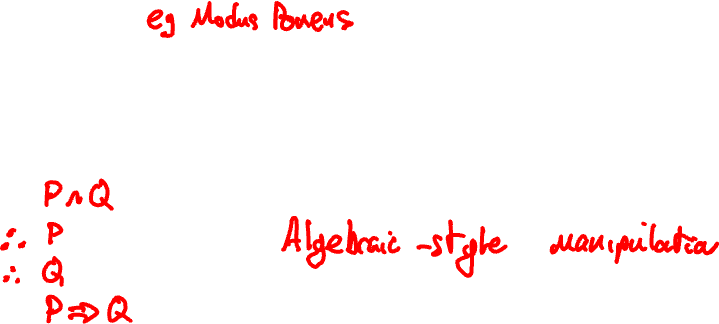 eg Modus Ponens
P ∧ Q
∴ P
∴ Q
P ⇒ Q
Algebraic-style manipulation